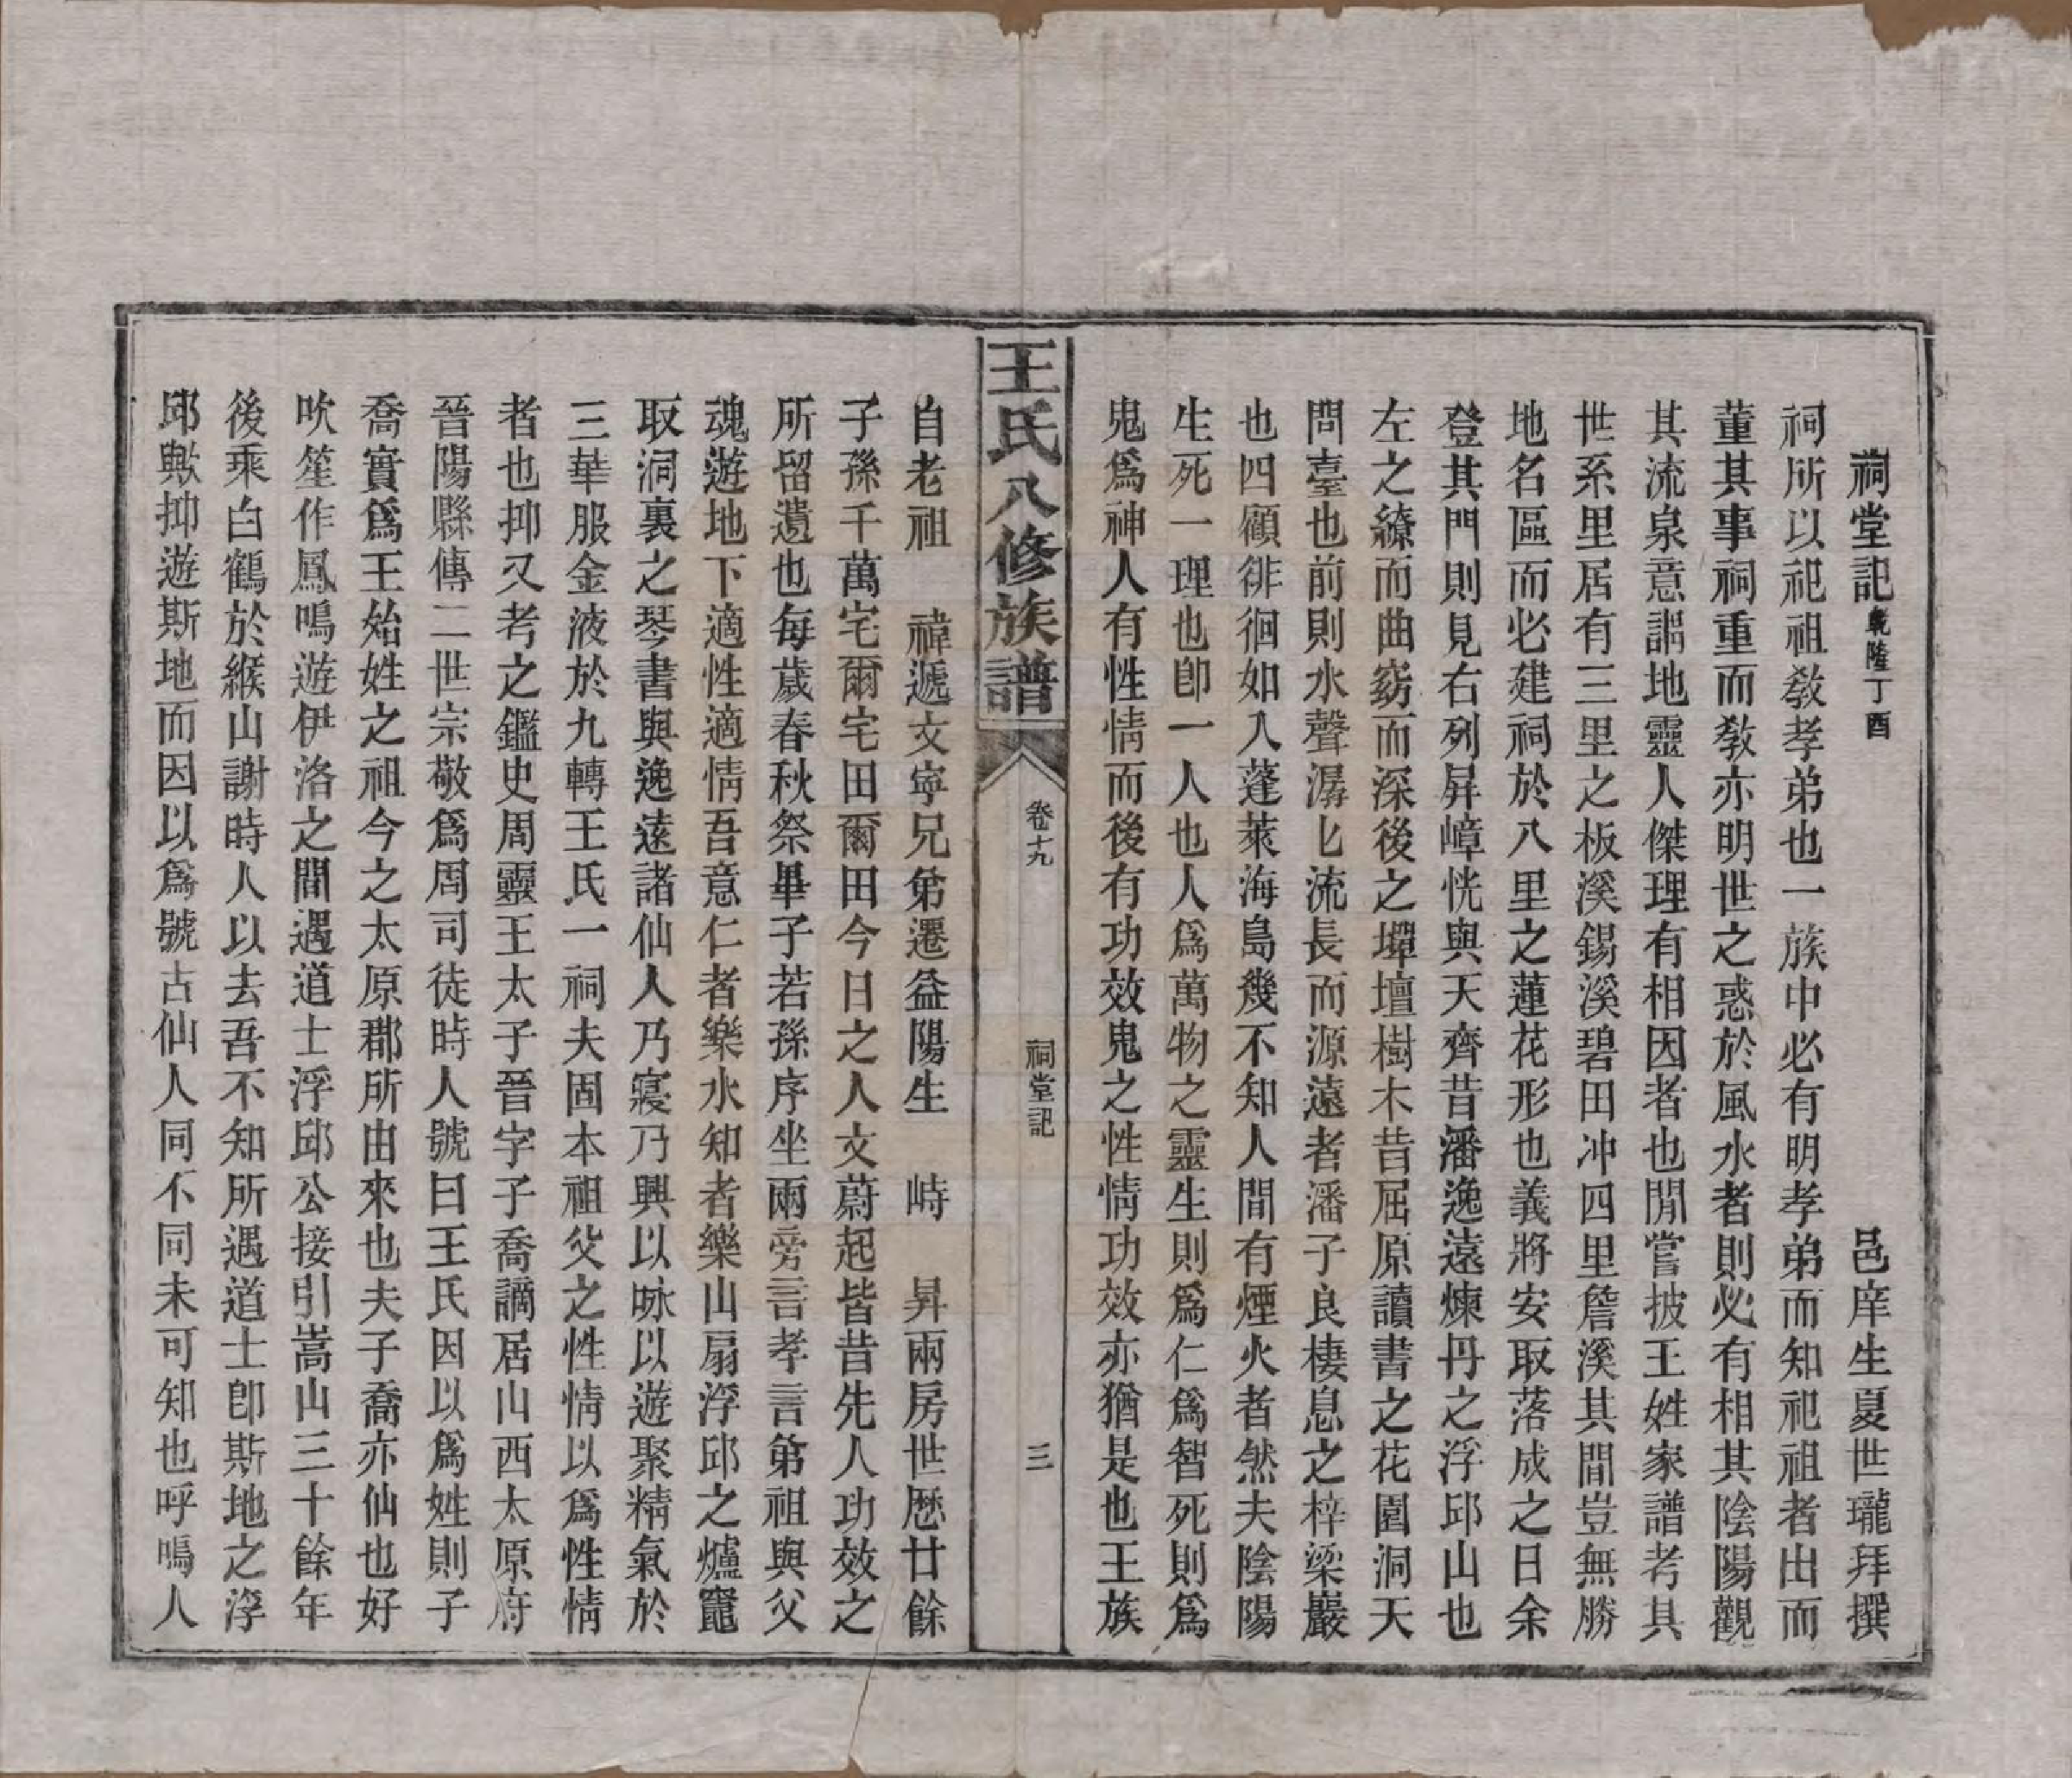 祠堂記乾隆丁酉 邑庠生夏世瓏拜撰
祠所以祀祖敎孝弟也一族中必有明孝弟而知祀祖者出而
董其事祠重而敎亦明世之惑於風水者則必有相其陰陽觀
其流泉意謂地靈人傑理有相因者也閒嘗披王姓家譜考其
世系里居有三里之板溪錫溪碧田冲四里詹溪其間豈無勝
地名區而必建祠於八里之蓮花形也義將安取落成之日余
登其門則見右列屏嶂恍與天齊昔潘逸遠煉丹之浮邱山也
左之繚而曲窈而深後之墠壇樹木昔屈原讀書之花園洞天
問臺也前則水聲潺匕流長而源遠者潘子良棲息之梓梁巖
也四顧徘徊如入蓬萊海島幾不知人間有煙火者然夫陰陽
生死一理也卽一人也人爲萬物之靈生則爲仁爲智死則爲
鬼爲神人有性情而後有功效鬼之性情功效亦猶是也王族
王氏八修族譜 卷十九 祠堂記 三
自老祖 禕遞文寧兄弟遷益陽生 峙 昇兩房世歷廿餘
子孫千萬宅爾宅田爾田今日之人文蔚起皆昔先人功效之
所留遺也每歲春秋祭畢子若孫序坐兩旁言孝言弟祖與父
魂遊地下適性適情吾意仁者樂水知者樂山扇浮邱之爐竈
取洞裏之琴書與逸遠諸仙人乃寢乃興以咏以遊聚精氣於
三華服金液於九轉王氏一祠夫固本祖父之性情以爲性情
者也抑又考之鑑史周靈王太子晉字子喬謫居山西太原府
晉陽縣傳二世宗敬爲周司徒時人號曰王氏因以爲姓則子
喬實爲王始姓之祖今之太原郡所由來也夫子喬亦仙也好
吹笙作鳳鳴遊伊洛之間遇道士浮邱公接引嵩山三十餘年
後乘白鶴於緱山謝時人以去吾不知所遇道士卽斯地之浮
邱歟抑遊斯地而因以爲號古仙人同不同未可知也呼嗚人